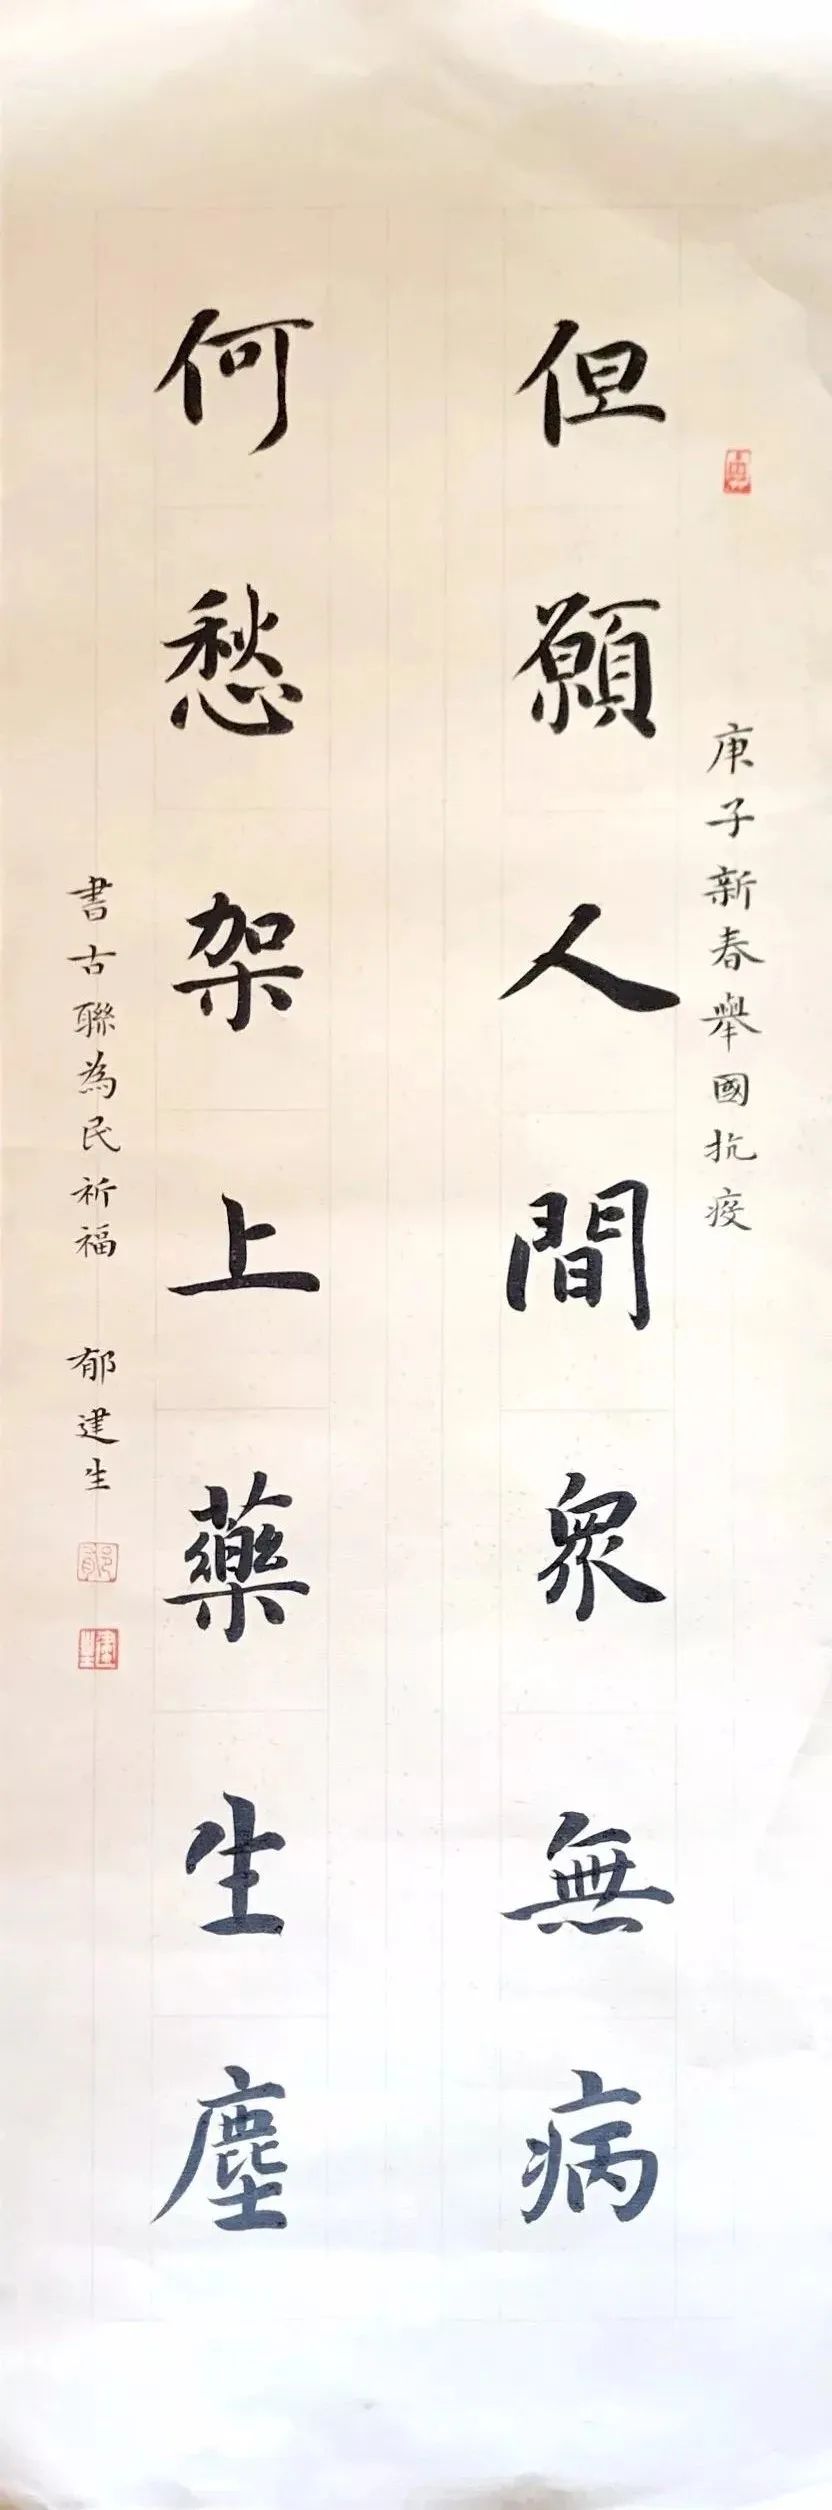 庚子新春舉國抗疫
但願人間眾無病
何愁架上藥生塵
書古聯為民祈福 郁建生
郁
建生